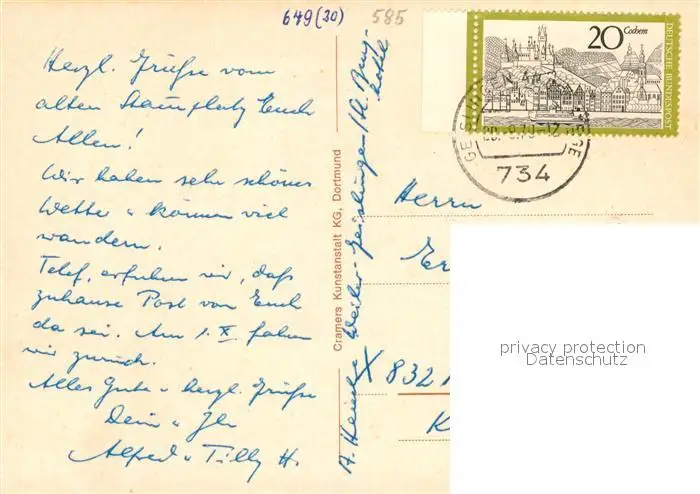 649 (30)
585
Herzl. Grüße vom
alten Stammplatz Euch
Allen!
Wir haben sehr schönes
Wetter u können viel
wandern.
Telef. erfuhren wir, daß
zuhause Post von Euch
da sei. Am 1. X. fahren
wir zurück.
Alles Gute u herzl. Grüße
Dein u Ihr
Alfred u Tilly H.
Cramers Kunstanstalt KG, Dortmund
Weiler-Geislingen
Herrn
X 832
K
20
Cochem
DEUTSCHE BUNDESPOST
GEISLINGEN
734
privacy protection
Datenschutz